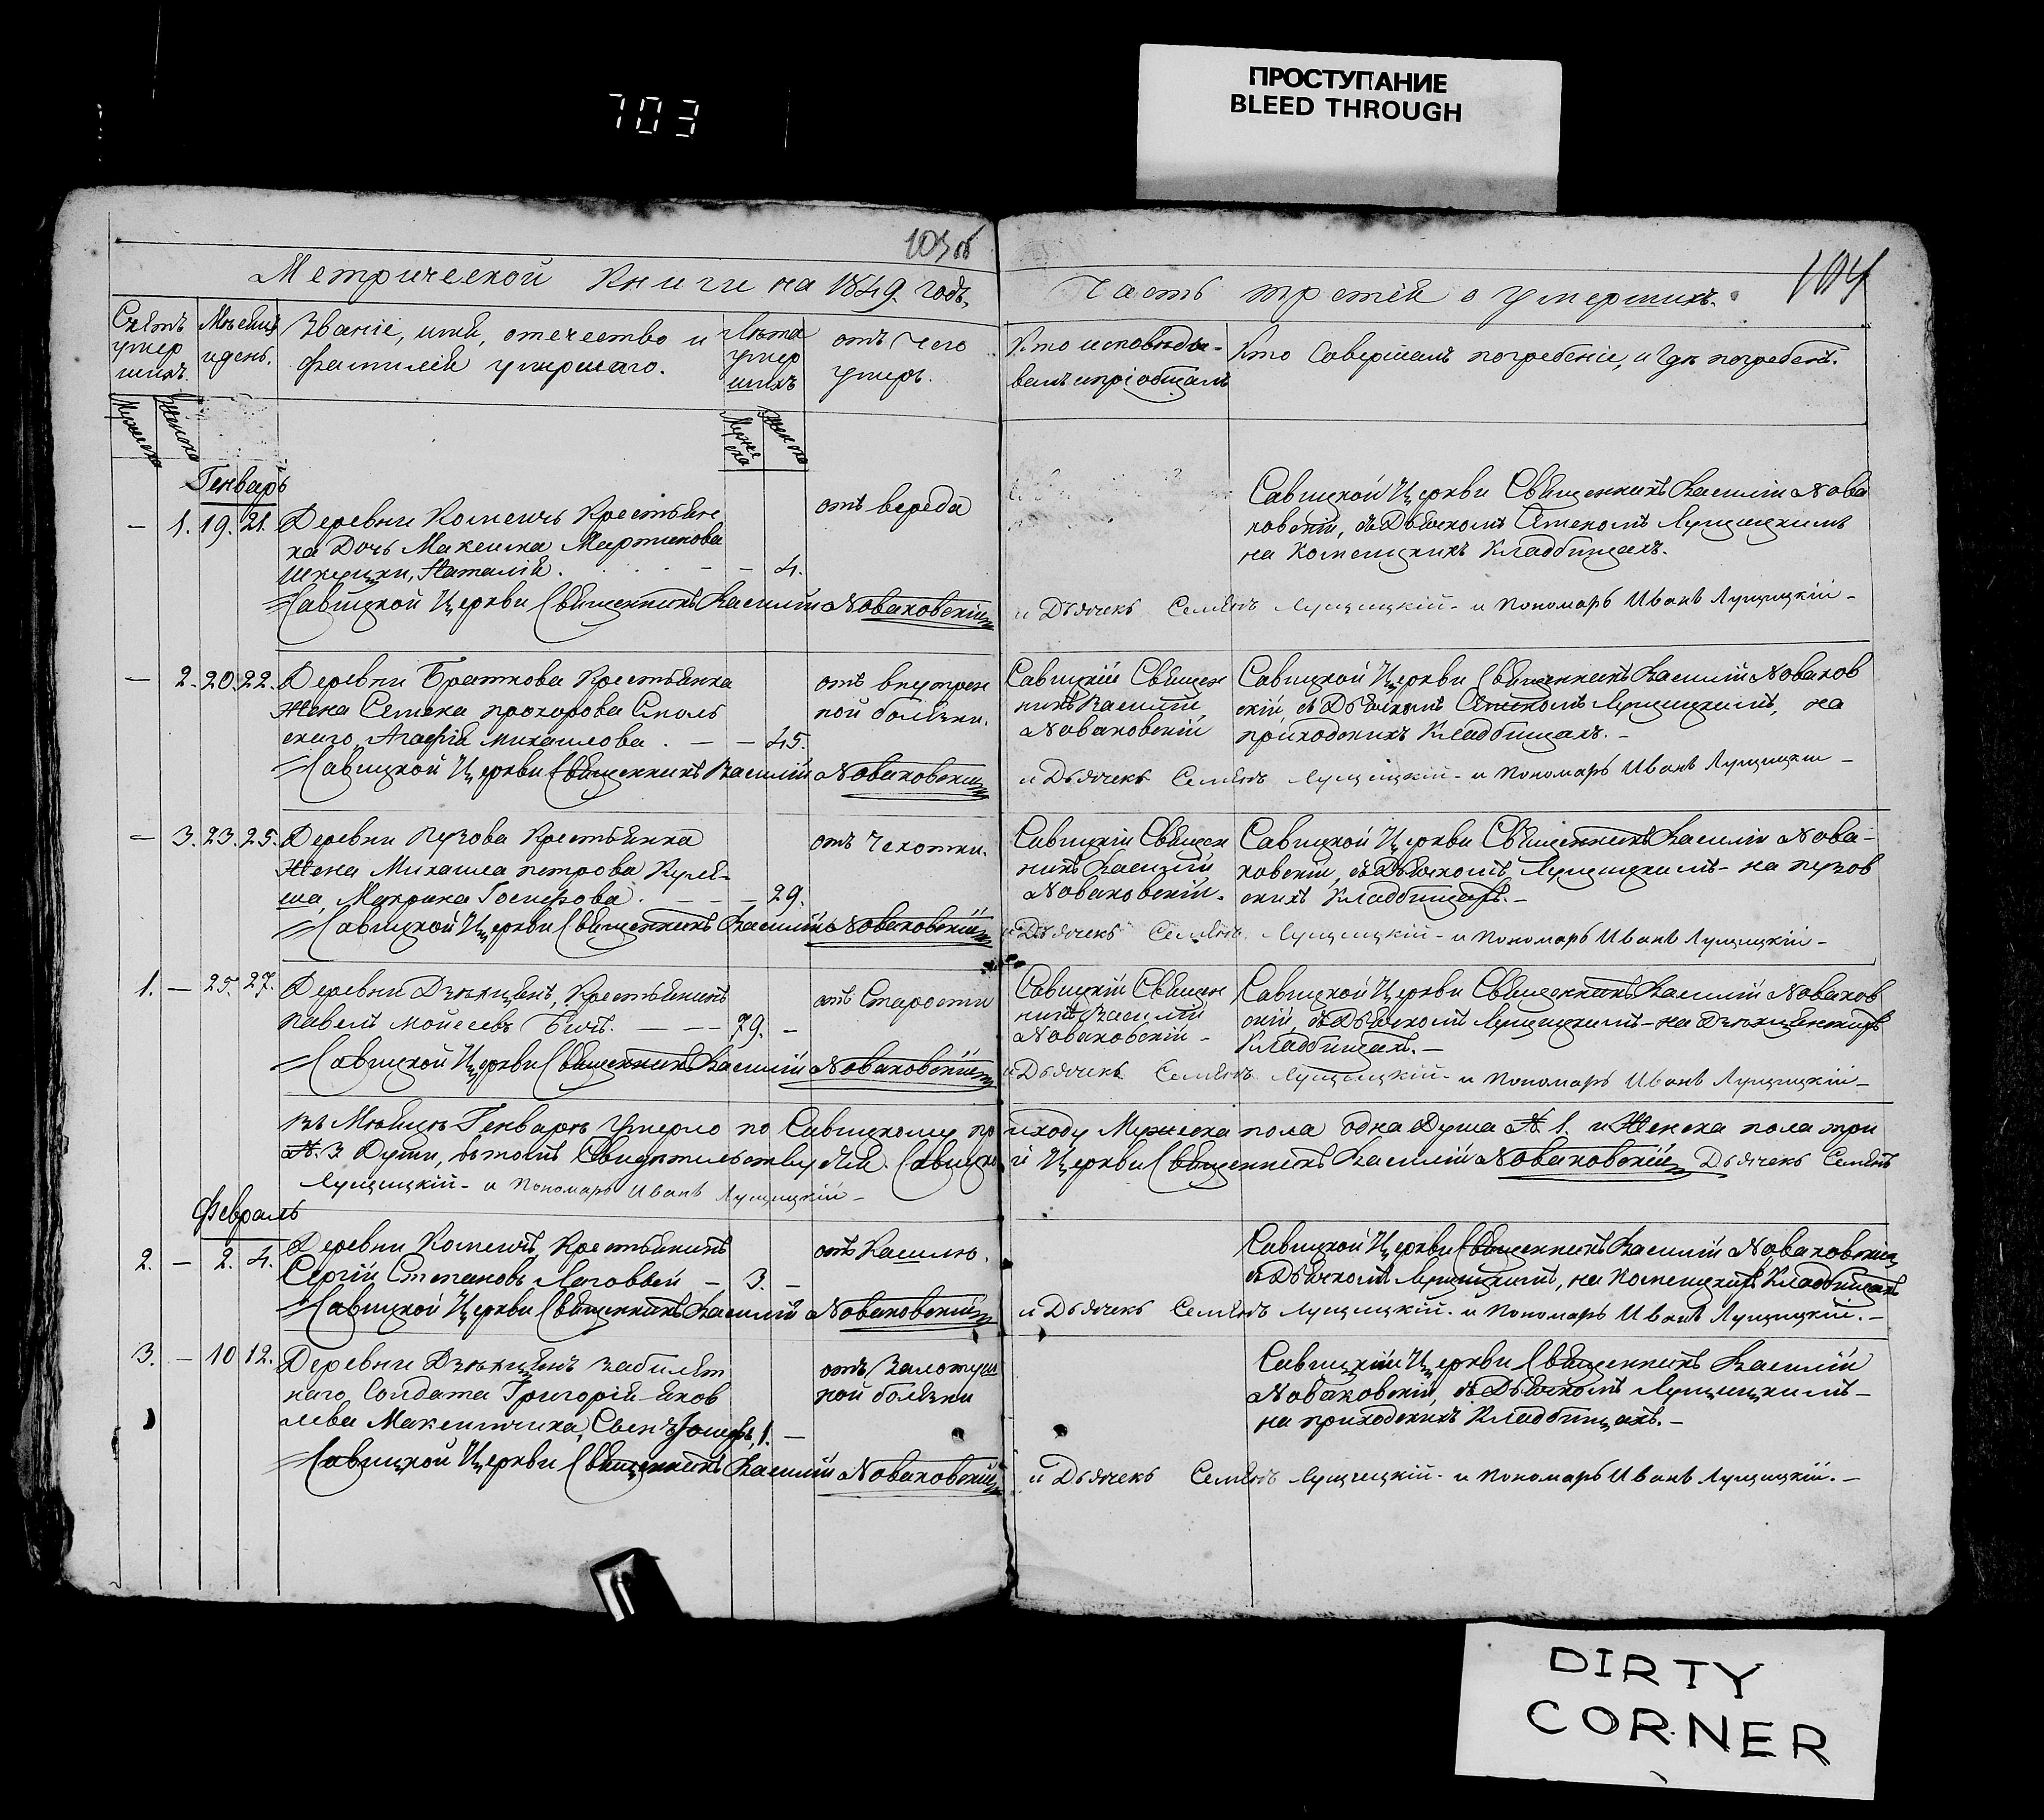 703
ПРОСТУПАНИЕ
BLEED THROUGH
103 об
104
Метрической Книги на 1849. годъ.
Часть третія о умершихъ.
Счетъ умер шихъ.
Мѣсяцъ и день.
Званіе, имя, отечество и фамилія умершаго.
Лѣта умер шихъ
отъ чего умеръ.
Кто исповѣды-валъ и пріобщалъ
Кто совершалъ погребеніе, и гдѣ погребенъ.
Мужеска
Женска
Муже ска
Женска
Генварь
— 1. 19. 21. Деревни Комешъ Крестьян
ка Дочь Максима Мартинова
Наталія. — 4.
отъ вереда
Савицкой Церкви Священникъ Василій Нова
ковскій, съ Дьячкомъ Семеномъ Лущицкимъ
на Комешскихъ Кладбищахъ.
Савицкой Церкви Священникъ Василій Новаковскій
и Дьячекъ Семенъ Лущицкій - и Пономарь Иванъ Лущицкій -
— 2. 20. 22. Деревни Браткова Крестьянка
Жена Семена Прохорова Смоль
скаго Агафія Михаилова . — — 45.
отъ внутрен
ной болѣзни.
Савицкій Священ
никъ Василій
Новаковскій
Савицкой Церкви Священникъ Василій Новаков
скій, съ Дьячкомъ Семеномъ Лущицкимъ, на
приходскихъ Кладбищахъ. —
Савицкой Церкви Священникъ Василій Новаковскій
и Дьячекъ Семенъ Лущицкій - и Пономарь Иванъ Лущицкій —
— 3. 23. 25. Деревни Пузова Крестьянка
Жена Михаила Петрова Куле-
ша, Макрина Госифова . — — — 29.
отъ Чахотки.
Савицкій Священ
никъ Василій
Новаковскій.
Савицкой Церкви Священникъ Василій Нова-
ковскій, съ Дьячкомъ Лущицкимъ - на пузов
скихъ Кладбищахъ. —
Савицкой Церкви Священникъ Василій Новаковскій
и Дьячекъ Семенъ Лущицкій - и Пономарь Иванъ Лущицкій -
1. — 25. 27. Деревни Крестьянинъ
Павелъ Мойсеевъ — — — 79. —
отъ Старости
Савицкій Священ
никъ Василій
Новаковскій -
Савицкой Церкви Священникъ Василій Новаков
скій, съ Дьячкомъ Лущицкимъ - на
Кладбищахъ. —
Савицкой Церкви Священникъ Василій Новаковскій
и Дьячекъ Семенъ Лущицкій - и Пономарь Иванъ Лущицкій -
въ Мѣсяцѣ Генварѣ Умерло по Савицкому приходу Мужеска пола одна Душа №. 1. и Женска пола три
№. 3 Души, въ томъ Свидѣтельствуемъ. Савицкой Церкви Священникъ Василій Новаковскій Дьячекъ Семенъ
Лущицкій - и Пономарь Иванъ Лущицкій -
Февраль
2. — 2. 4. Деревни Комешъ, Крестьянинъ
Сергій Степановъ Лаговвей — 3. —
отъ Кашлю.
Савицкой Церкви Священникъ Василій Новаковскій
съ Дьячкомъ Лущицкимъ, на Комешскихъ Кладбищахъ
Савицкой Церкви Священникъ Василій Новаковскій
и Дьячекъ Семенъ Лущицкій - и Пономарь Иванъ Лущицкій. —
3. — 10 12. Деревни забилет
наго Солдата Григорія Яков
лева Максимчика, Сынъ Іосифъ, 1. —
отъ Золотуш
ной болѣзни
Савицкій Церкви Священникъ Василій
Новаковскій, съ Дьячкомъ Лущицкимъ —
на приходскихъ Кладбищахъ. —
Савицкой Церкви Священникъ Василій Новаковскій
и Дьячекъ Семенъ Лущицкій - и Пономарь Иванъ Лущицкій. —
DIRTY
CORNER